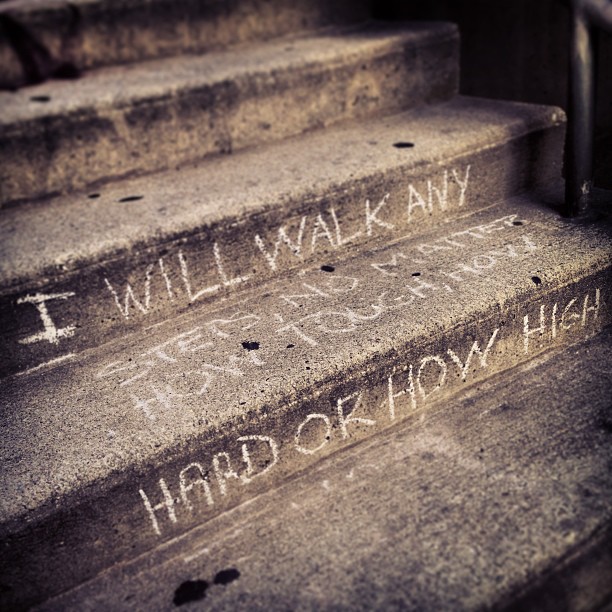 I WILL WALK ANY
STEPS, NO MATTER
HOW TOUGH, HOW
HARD OR HOW HIGH